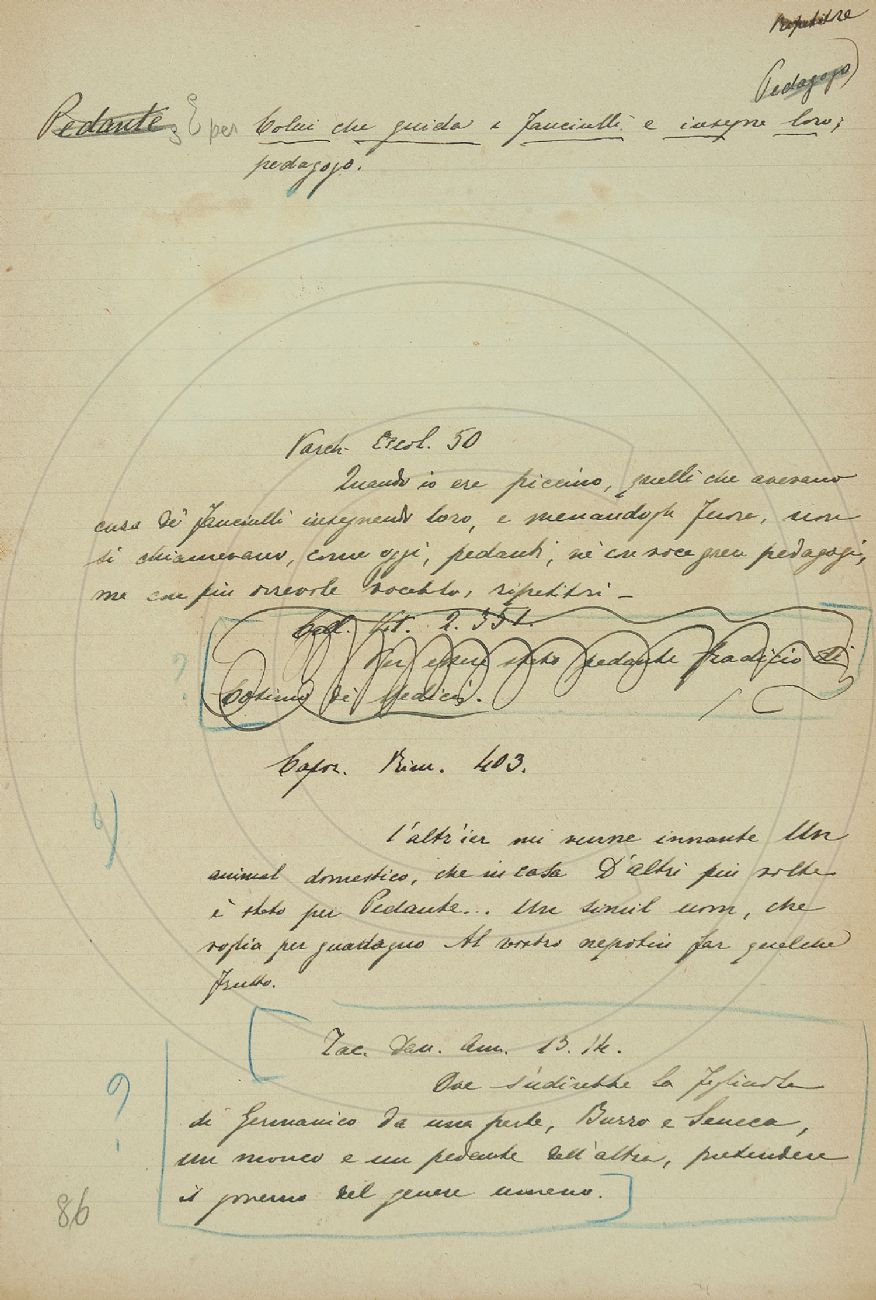 Repetitore
Pedagogo)
Pedante, E per Colui che guida i fanciulli e insegna loro;
pedagogo.
Varch. Ercol. 50
Quando io ero piccino, quelli che avevano
cura de' fanciulli insegnando loro, e menandogli fuore, non
si chiamavano, come oggi, pedanti, nè con voce greca pedagogi,
ma con più orrevole vocabolo, ripetitori —
Vit. 2. 351.
Per essere stato pedante Pradicio di
Cosimo de' Medici.
Capor. Rim. 403.
L'altr'ier mi venne innante Un
animal domestico, che in casa D'altri più volte
è stato per Pedante... Un simil uom, che
voglia per guadagno Al vostro nepotin far qualche
frutto.
Tac. Dav. Ann. 13. 14.
Ove s'udirebbe la figliuola
di Germanico da una parte, Burro e Seneca,
un monco e un pedante dall'altra, pretendere
il governo del genere umano.
86